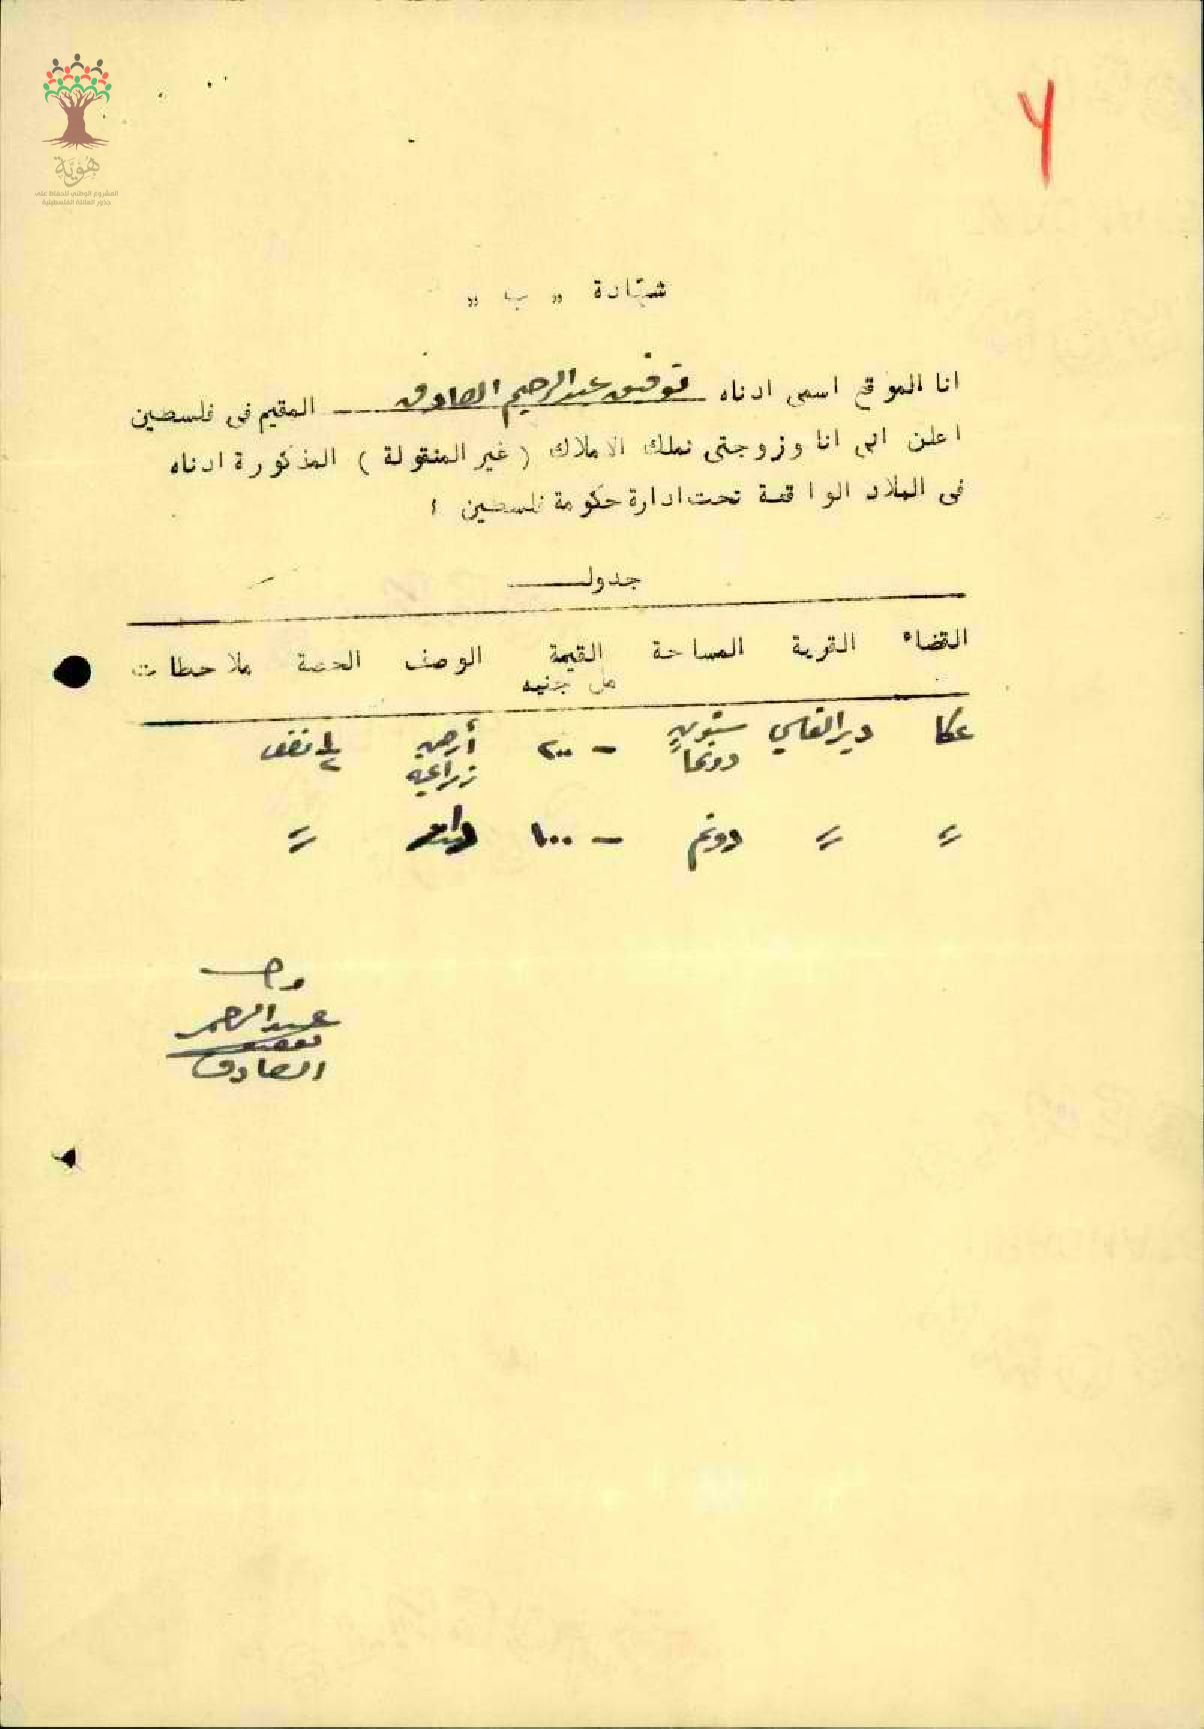 هوية
المشروع الوطني للحفاظ على
جذور العائلة الفلسطينية
شهادة " ب "
انا الموقع اسمى ادناه توفيق عبد الرحيم الصادق المقيم فى فلسطين
اعلن انى انا وزوجتى نملك الاملاك ( غير المنقولة ) المذكورة ادناه
فى البلاد الواقعة تحت ادارة حكومة فلسطين :
جدول
القضاء القرية المساحة القيمة الوصف الحصة ملاحظات
مل جنيه
عكا دير القاسي ستون دونماً — ٢٠٠ أرض زراعية ١/٢ نصف
" " دونم — ١٠٠ "
الصادق